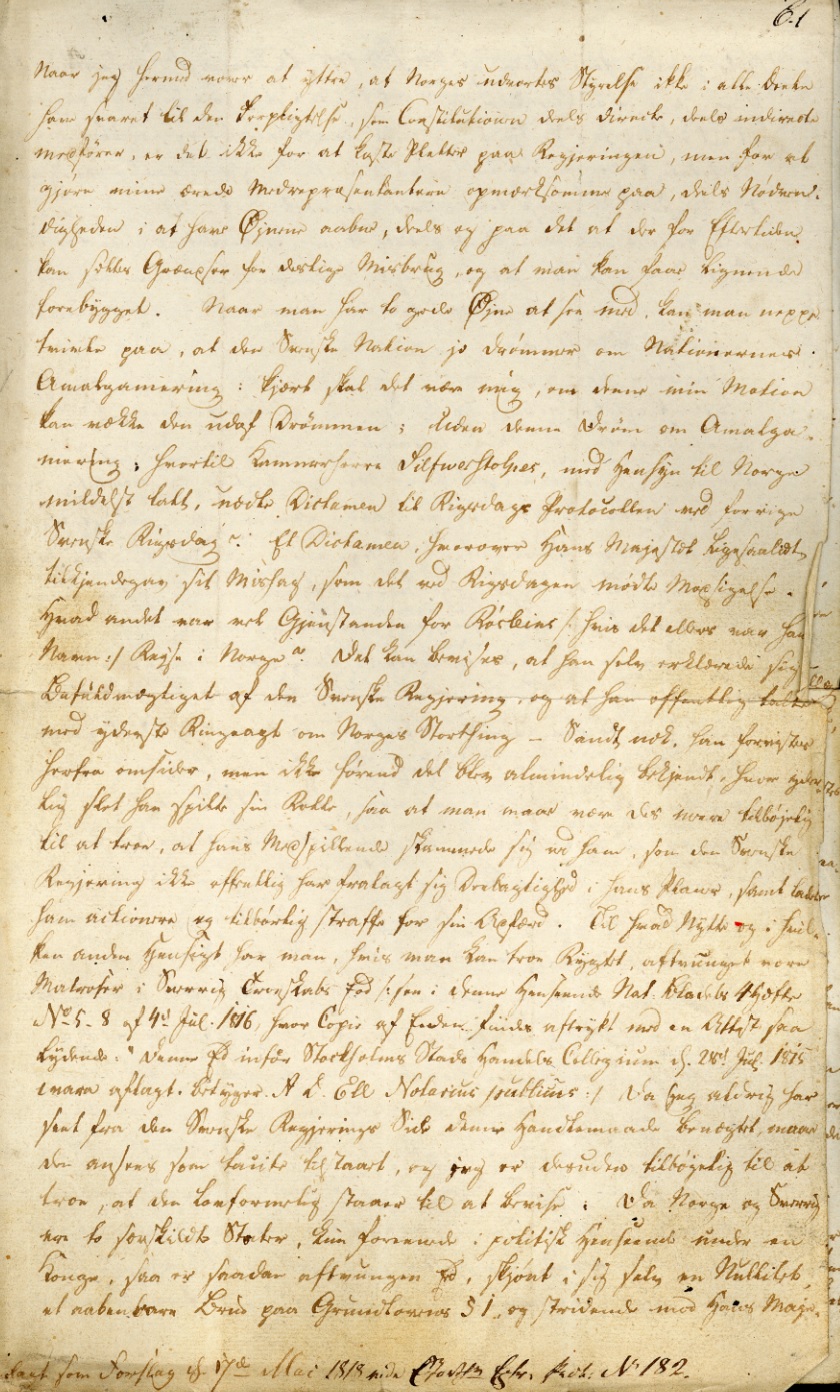 6.1
Naar jeg hermed vover at yttre, at Norges udvortes Styrelse ikke i alle Deele
have svaret til den Forpligtelse, som Constitutionen deels directe, deels indirecte
medfører, er det ikke for at kaste Pletter paa Regjeringen, men for at
gjøre mine ærede Medrepræsentantere opmærksomme paa, deels Nødven-
digheden i at have Øjnene aabne, deels og paa det at der for Eftertiden
kan sættes Grændser for deslige Misbrug, og at man kan faae lignende
forebygget. Naar man har to gode Øjne at see med, kan man neppe
tvivle paa, at den Svenske Nation jo drømmer om Nationernes
Amalgamering: kjært skal det være mig, om denne min Motion
kan vække den udaf Drømmen; Uden denne Drøm om Amalga-
mering, hvortil Kammerherre Silfverstolpes, med Hensyn til Norge
mildelst talt, uædle Dictamen til Rigsdags Protocollen ved forrige
Svenske Rigsdag? Et Dictamen, hvorover Hans Majestæt ligesaalidt
tilkjendegav sit Mishag, som det ved Rigsdagen mødte Modsigelse.
Hvad andet var vel Gjenstanden for Røsleins /: hvis det ellers var hans
Navn :/ Rejse i Norge? Det kan bevises, at han selv erklærede sig
Befuldmægtiget af den Svenske Regjering, og at han offentlig talte
med yderste Ringeagt om Norges Storthing – Sandt nok, han forvistes
herfra omsider, men ikke førend det blev almindelig bekjendt, hvor ynke-
lig slet han spilte sin Rolle, saa at man maae være des mere tilbøjelig
til at troe, at hans Medspillende skammede sig ved ham, som den Svenske
Regjering ikke offentlig har fralagt sig Deelagtighed i hans Planer, samt ladet
ham actionere og tilbørlig straffe for sin Adfærd. Til hvad Nytte og i hvil-
ken anden Hensigt har man, hvis man kan troe Rygtet, aftvunget vore
Matroser i Sverrig Troeskabs Eed /: see i denne Henseende Nat. Bladets 4 Hæfte
No 5-8 af 4d Jul. 1816, hvor Copie af Eeden findes aftrykt med en Attest saa
lydende: "Denne Ed inför Stockholms Stads Handels Collegium d. 28d Jul. 1815
vara aflagt. betyger. A. L. Ell Notarius publicus :/ Da jeg aldrig har
seet fra den Svenske Regjerings Side denne Handlemaade benægtet, maae
den ansees som taust tilstaaet, og jeg er desuden tilbøjelig til at
troe, at den lovformelig staaer til at bevise. Da Norge og Sverrig
ere to særskildte Stater, kun forenede i politisk Henseende under en
Konge, saa er saadan aftvungen Ed, skjønt i sig selv en Nullitet,
et aabenbare Brud paa Grundlovens § 1, og stridende mod Hans Maje-
som Forslag d. 17de Mai 1818 vide No 182.